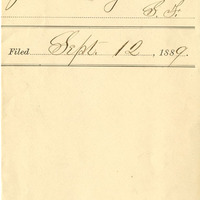 S. F.
Filed Sept. 12, 1889.